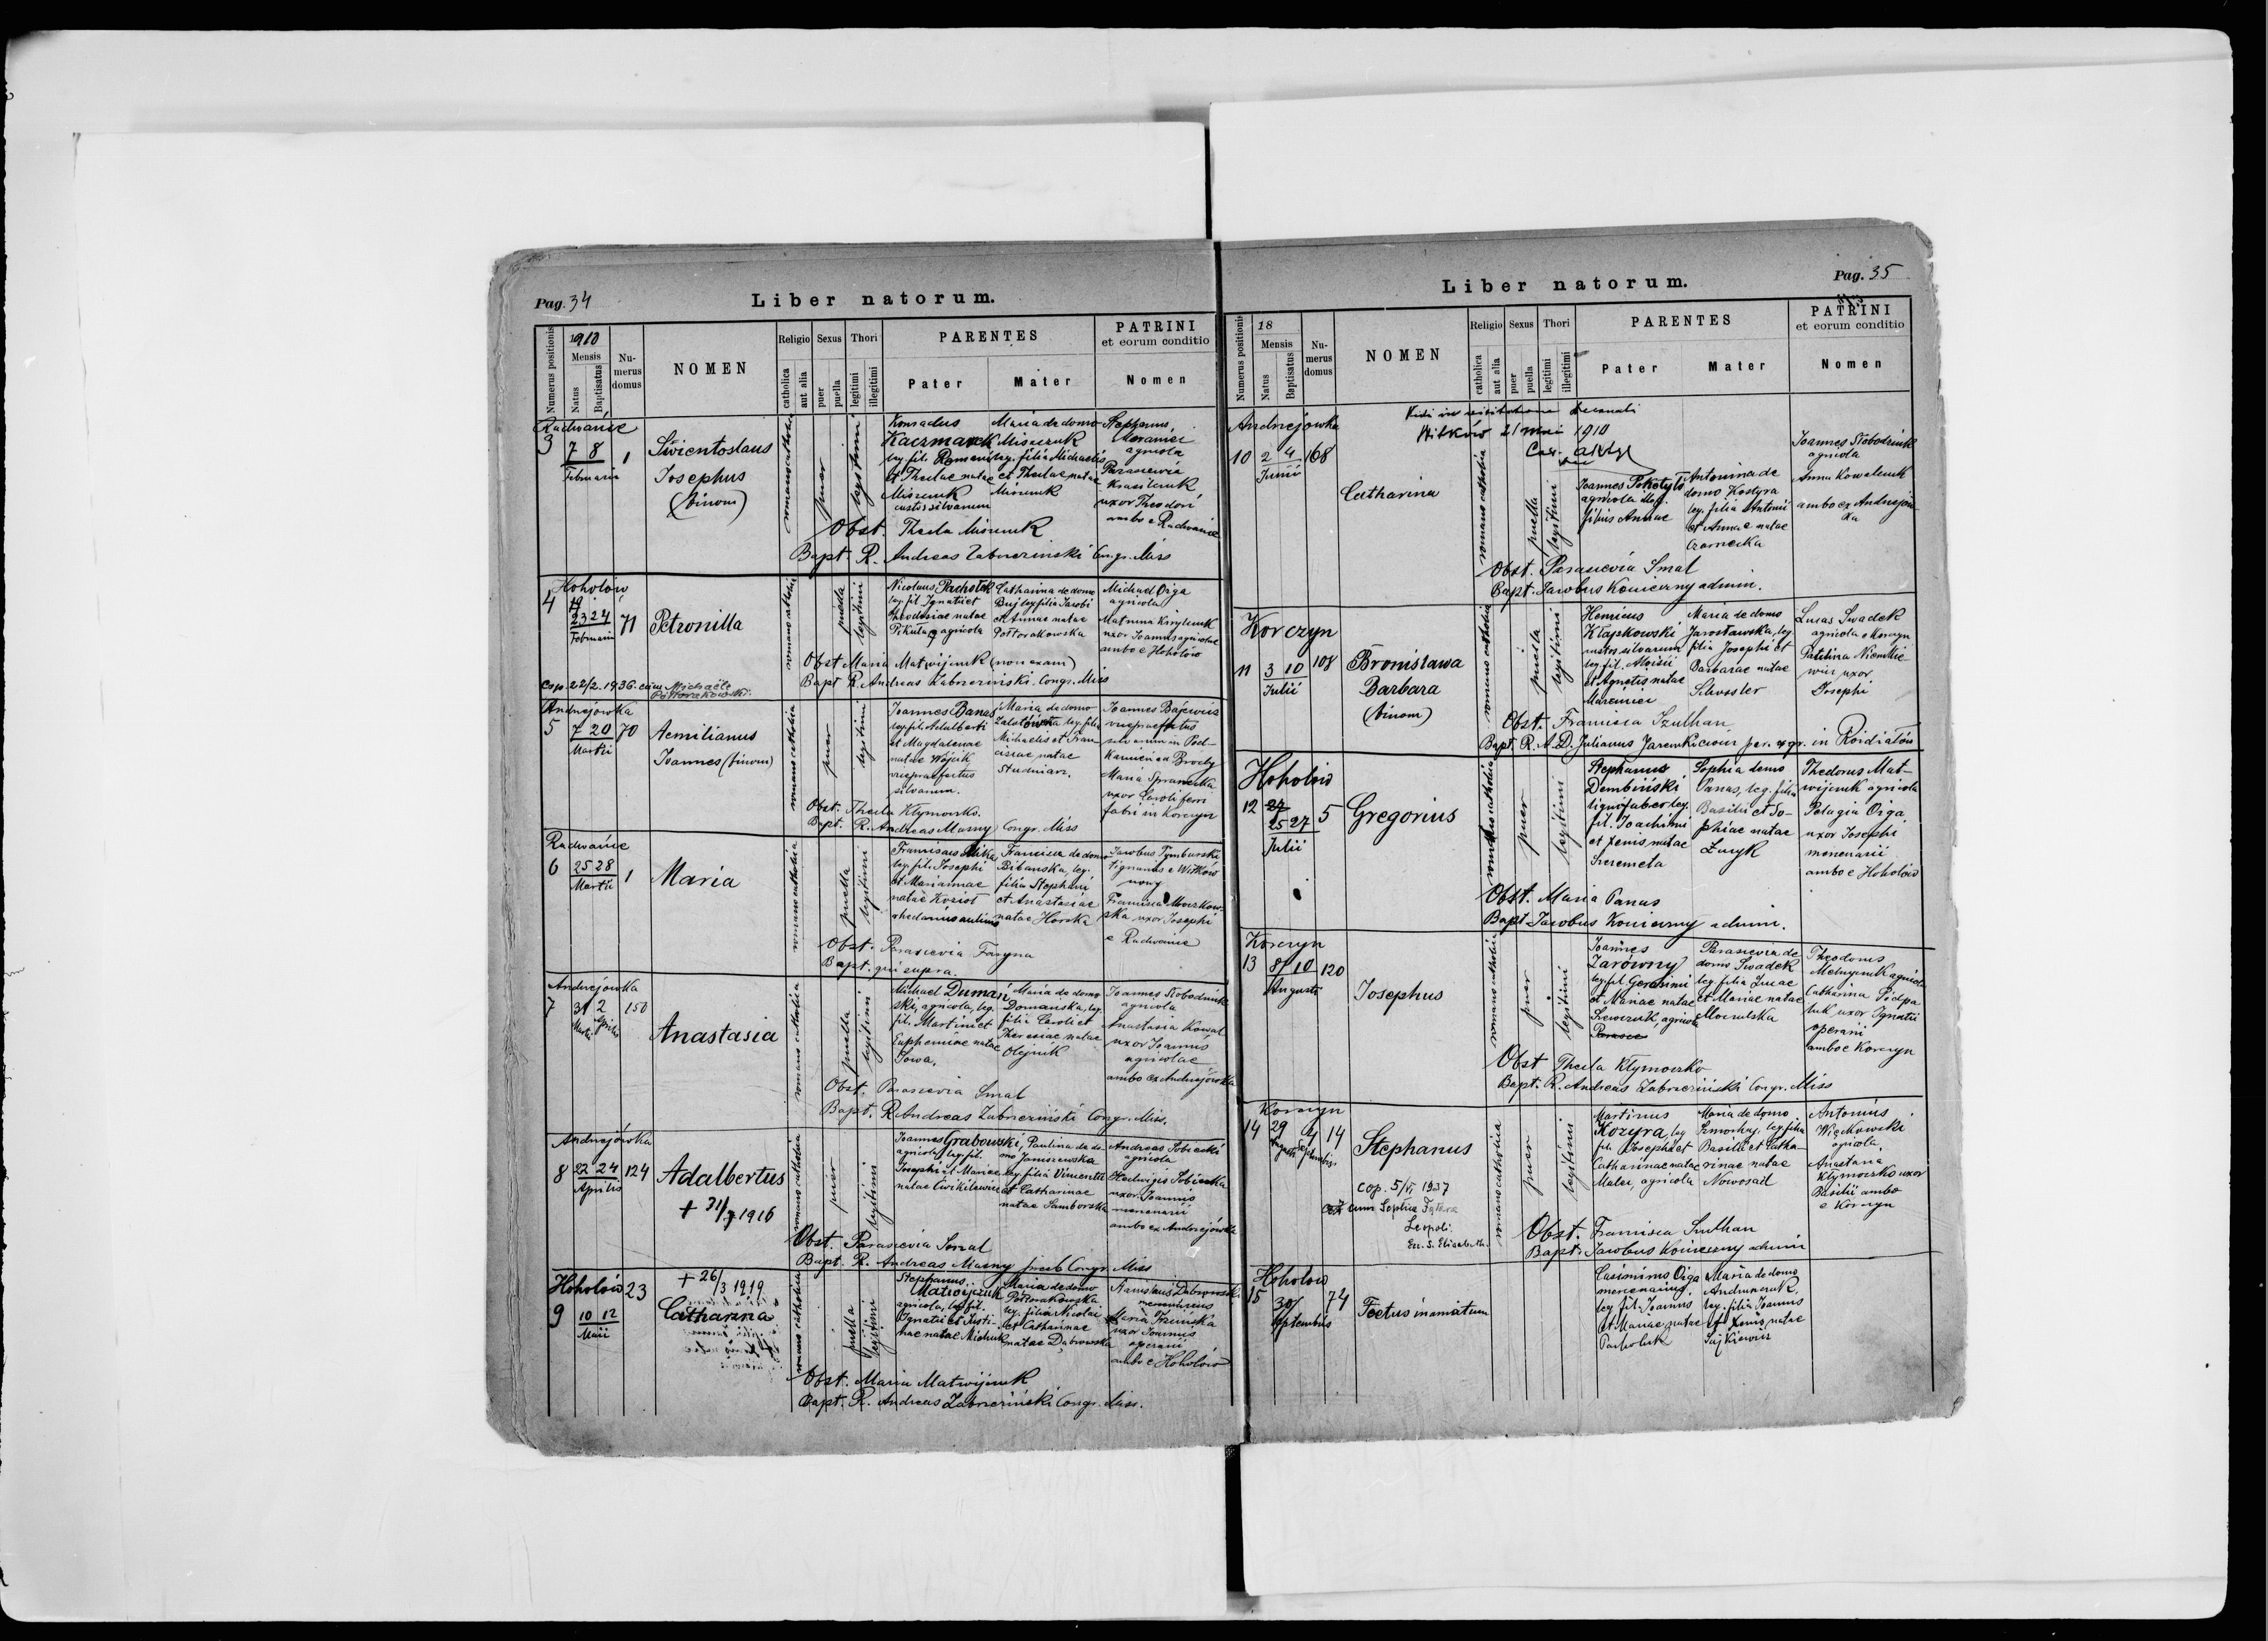 Pag. 34
Liber natorum.
Numerus positionis
1910
Mensis
Natus
Baptisatus
Nu-
merus
domus
NOMEN
Religio
catholica
aut alia
Sexus
puer
puella
Thori
legitimi
illegitimi
PARENTES
Pater
Mater
PATRINI
et eorum conditio
Nomen
Radwańce
3
7 8
Februarii
1
Świentoslaus
Josephus
(binom)
romano catholica
puer
legitimi
Konradus
Kaczmarek
leg. fil. Romani
et Theclae natae
Misiczuk
custos silvarum
Maria de domo
Misiczuk
leg. filia Michaelis
et Theclae natae
Misiczuk
Stephanus
agricola
Parascevia
Krasilczuk
uxor Theodori
ambo e Radwańce
Obst. Thecla Misiczuk
Bapt. R. Andreas Zabrzeziński Congr. Miss
Hohołów
4
19
23 24
Februarii
71
Petronilla
romano catholica
puella
legitimi
Nicolaus Pachołek
leg. fil. Ignatii et
Theodosiae natae
Pikuła agricola
Catharina de domo
Buj leg. filia Jacobi
et Annae natae
Półtorakowska
Michael Oiga
agricola
Matruna Kirylczuk
uxor Joannis agricolae
ambo e Hohołów
Obst Maria Matwijczuk (non exam)
Bapt R. Andreas Zabrzeziński. Congr. Miss
Cop. 22/2. 1936. cum Michaële
Półtorakowski.
Andrzejówka
5
7 20
Martii
70
Aemilianus
Joannes (binom)
romano catholica
puer
legitimi
Joannes Banas
leg. fil. Adalberti
et Magdalenae
natae Wójcik
vicepraefectus
silvarum.
Maria de domo
leg. filia
Michaelis et Fran-
ciscae natae
Studniarz.
Joannes Bajewicz
vicepraefectus
silvarum in Pod-
Kamień ad Brody
Maria
uxor Caroli ferri
fabri in Korczyn
Obst. Thecla Kłymowsko.
Bapt. R. Andreas Masny Congr. Miss
Radwańce
6
25 28
Martii
1
Maria
romano catholica
puella
legitimi
Franciscus Mika
leg. fil. Josephi
et Mariannae
natae Kozioł
rhedarius aulicus
Francisca de domo
Bibanska, leg.
filia Stephani
et Anastasiae
natae Horska
Jacobus Tymburski
lignarius e Witków
nowy
Francisca Mroczkow-
ska uxor Josephi
e Radwańce
Obst. Parascevia Faryna
Bapt. qui supra.
Andrzejówka
7
31 2
Martii Aprilis
150
Anastasia
romano catholica
puella
legitimi
Michael Dumań-
ski, agricola, leg.
fil. Martini et
Euphemiae natae
Sowa.
Maria de domo
Domańska, leg.
filia Caroli et
Theresiae natae
Olejnik
Joannes Słobodziuk
agricola
Anastasia Kowal
uxor Joannis
agricolae
ambo ex Andrzejówka
Obst. Parascevia Smal
Bapt. R Andreas Zabrzeziński Congr. Miss.
Andrzejówka
8
22 24
Aprilis
124
Adalbertus
+ 31/7 1916
romano catholica
puer
legitimi
Joannes Grabowski,
agricola, leg. fil.
Josephi et Mariae
natae Cwikilewicz
Paulina de do-
mo Janiszewska
leg. filia Vincentii
et Catharinae
natae Samborska
Andreas Sobiecki
agricola
Hedwigis Sobiecka
uxor Joannis
mercenarii
ambo ex Andrzejówka
Obst. Parascevia Smal
Bapt. R. Andreas Masny presb Congr. Miss
Hohołów
9
10 12
Maii
23
+ 26/3 1919
Catharina
romano catholica
puella
legitimi
Stephanus
Matwijczuk
agricola, leg. fil.
Ignatii et Justi-
nae natae
Maria de domo
Półtorakowska
leg. filia Nicolai
et Catharinae
natae Dąbrowska
Stanislaus Dąbrowski
mercenarius
Maria
uxor Joannis
operarii
ambo e Hohołów
Obst. Maria Matwijczuk
Bapt. R. Andreas Zabrzeziński Congr. Miss.
Pag. 35
Liber natorum.
Numerus positionis
18
Mensis
Natus
Baptisatus
Nu-
merus
domus
NOMEN
Religio
catholica
aut alia
Sexus
puer
puella
Thori
legitimi
illegitimi
PARENTES
Pater
Mater
PATRINI
et eorum conditio
Nomen
Vidi in visitatione decanali
Witków 21 maii 1910
Andrzejówka
10
2 4
Junii
168
Catharina
romano catholica
puella
legitimi
Joannes Pokotyło
agricola illeg.
filius Annae
Antonina de
domo Kostyra
leg. filia Antonii
et Annae natae
Czarnecka
Joannes Słobodziuk
agricola
Anna Kowalczuk
ambo ex Andrzejów-
ka
Obst. Parascevia Smal
Bapt. Jacobus Konieczny admin.
Korczyn
11
3 10
Julii
108
Bronisława
Barbara
(binom)
romano catholica
puella
legitimi
Henricus
Kłapkowski
custos silvarum
leg. fil. Aloisii
et Agnetis natae
Maria de domo
Jarosławska, leg.
filia Josephi et
Barbarae natae
Lucas Swadek
agricola e Korczyn
Paulina
uxor
Josephi
Obst. Francisca Szulhan
Bapt. R. A. D. Julianus par. in
Hohołów
12
27
25 27
Julii
5
Gregorius
romano catholica
puer
legitimi
Stephanus
Dembiński
lignifaber leg.
fil. Joachimi
et Xenis natae
Szeremeta
Sophia domo
Panas, leg. filia
Basilii et So-
phiae natae
Zuryk
Thedorus Mat-
wijczuk agricola
Pelagia Oiga
uxor Josephi
mercenarii
ambo e Hohołów
Obst. Maria Panas
Bapt. Jacobus Konieczny admin.
Korczyn
13
8 10
Augusti
120
Josephus
romano catholica
puer
legitimi
Joannes
Zarówny
leg. fil.
et Mariae natae
Szewczuk, agricola
Parascevia de
domo Swadek
leg. filia Lucae
et Mariae natae
Theodorus
Melnyczuk agricola
Catharina Pidpa
luk uxor Ignatii
operarii
ambo e Korczyn
Obst Thecla Kłymowsko
Bapt. R. Andreas Zabrzeziński Congr. Miss
Korczyn
14
29 4
Augusti Septembris
14
Stephanus
cop. 5/VI 1937
cum Sophia
Leopoli.
Ecc. S. Elisabeth.
romano catholica
puer
legitimi
Martinus
Kozyra, leg
fil. Josephi et
Catharinae natae
Malec, agricola
Maria de domo
leg filia
Basilii et Catha-
rinae natae
Nowosad
Antonius
Więckowski
agricola
Anastasia
Kłymowsko uxor
Basilii ambo
e Korczyn
Obst. Francisca Szulhan
Bapt. Jacobus Konieczny admin
Hohołów
15
30
Septembris
74
Foetus inanimatum
Casimirus Oiga
mercenarius,
leg. fil. Joannis
et Mariae natae
Pacholuk
Maria de domo
Andruszczuk,
leg. filia Joannis
et Xenis natae
Sajkiewicz